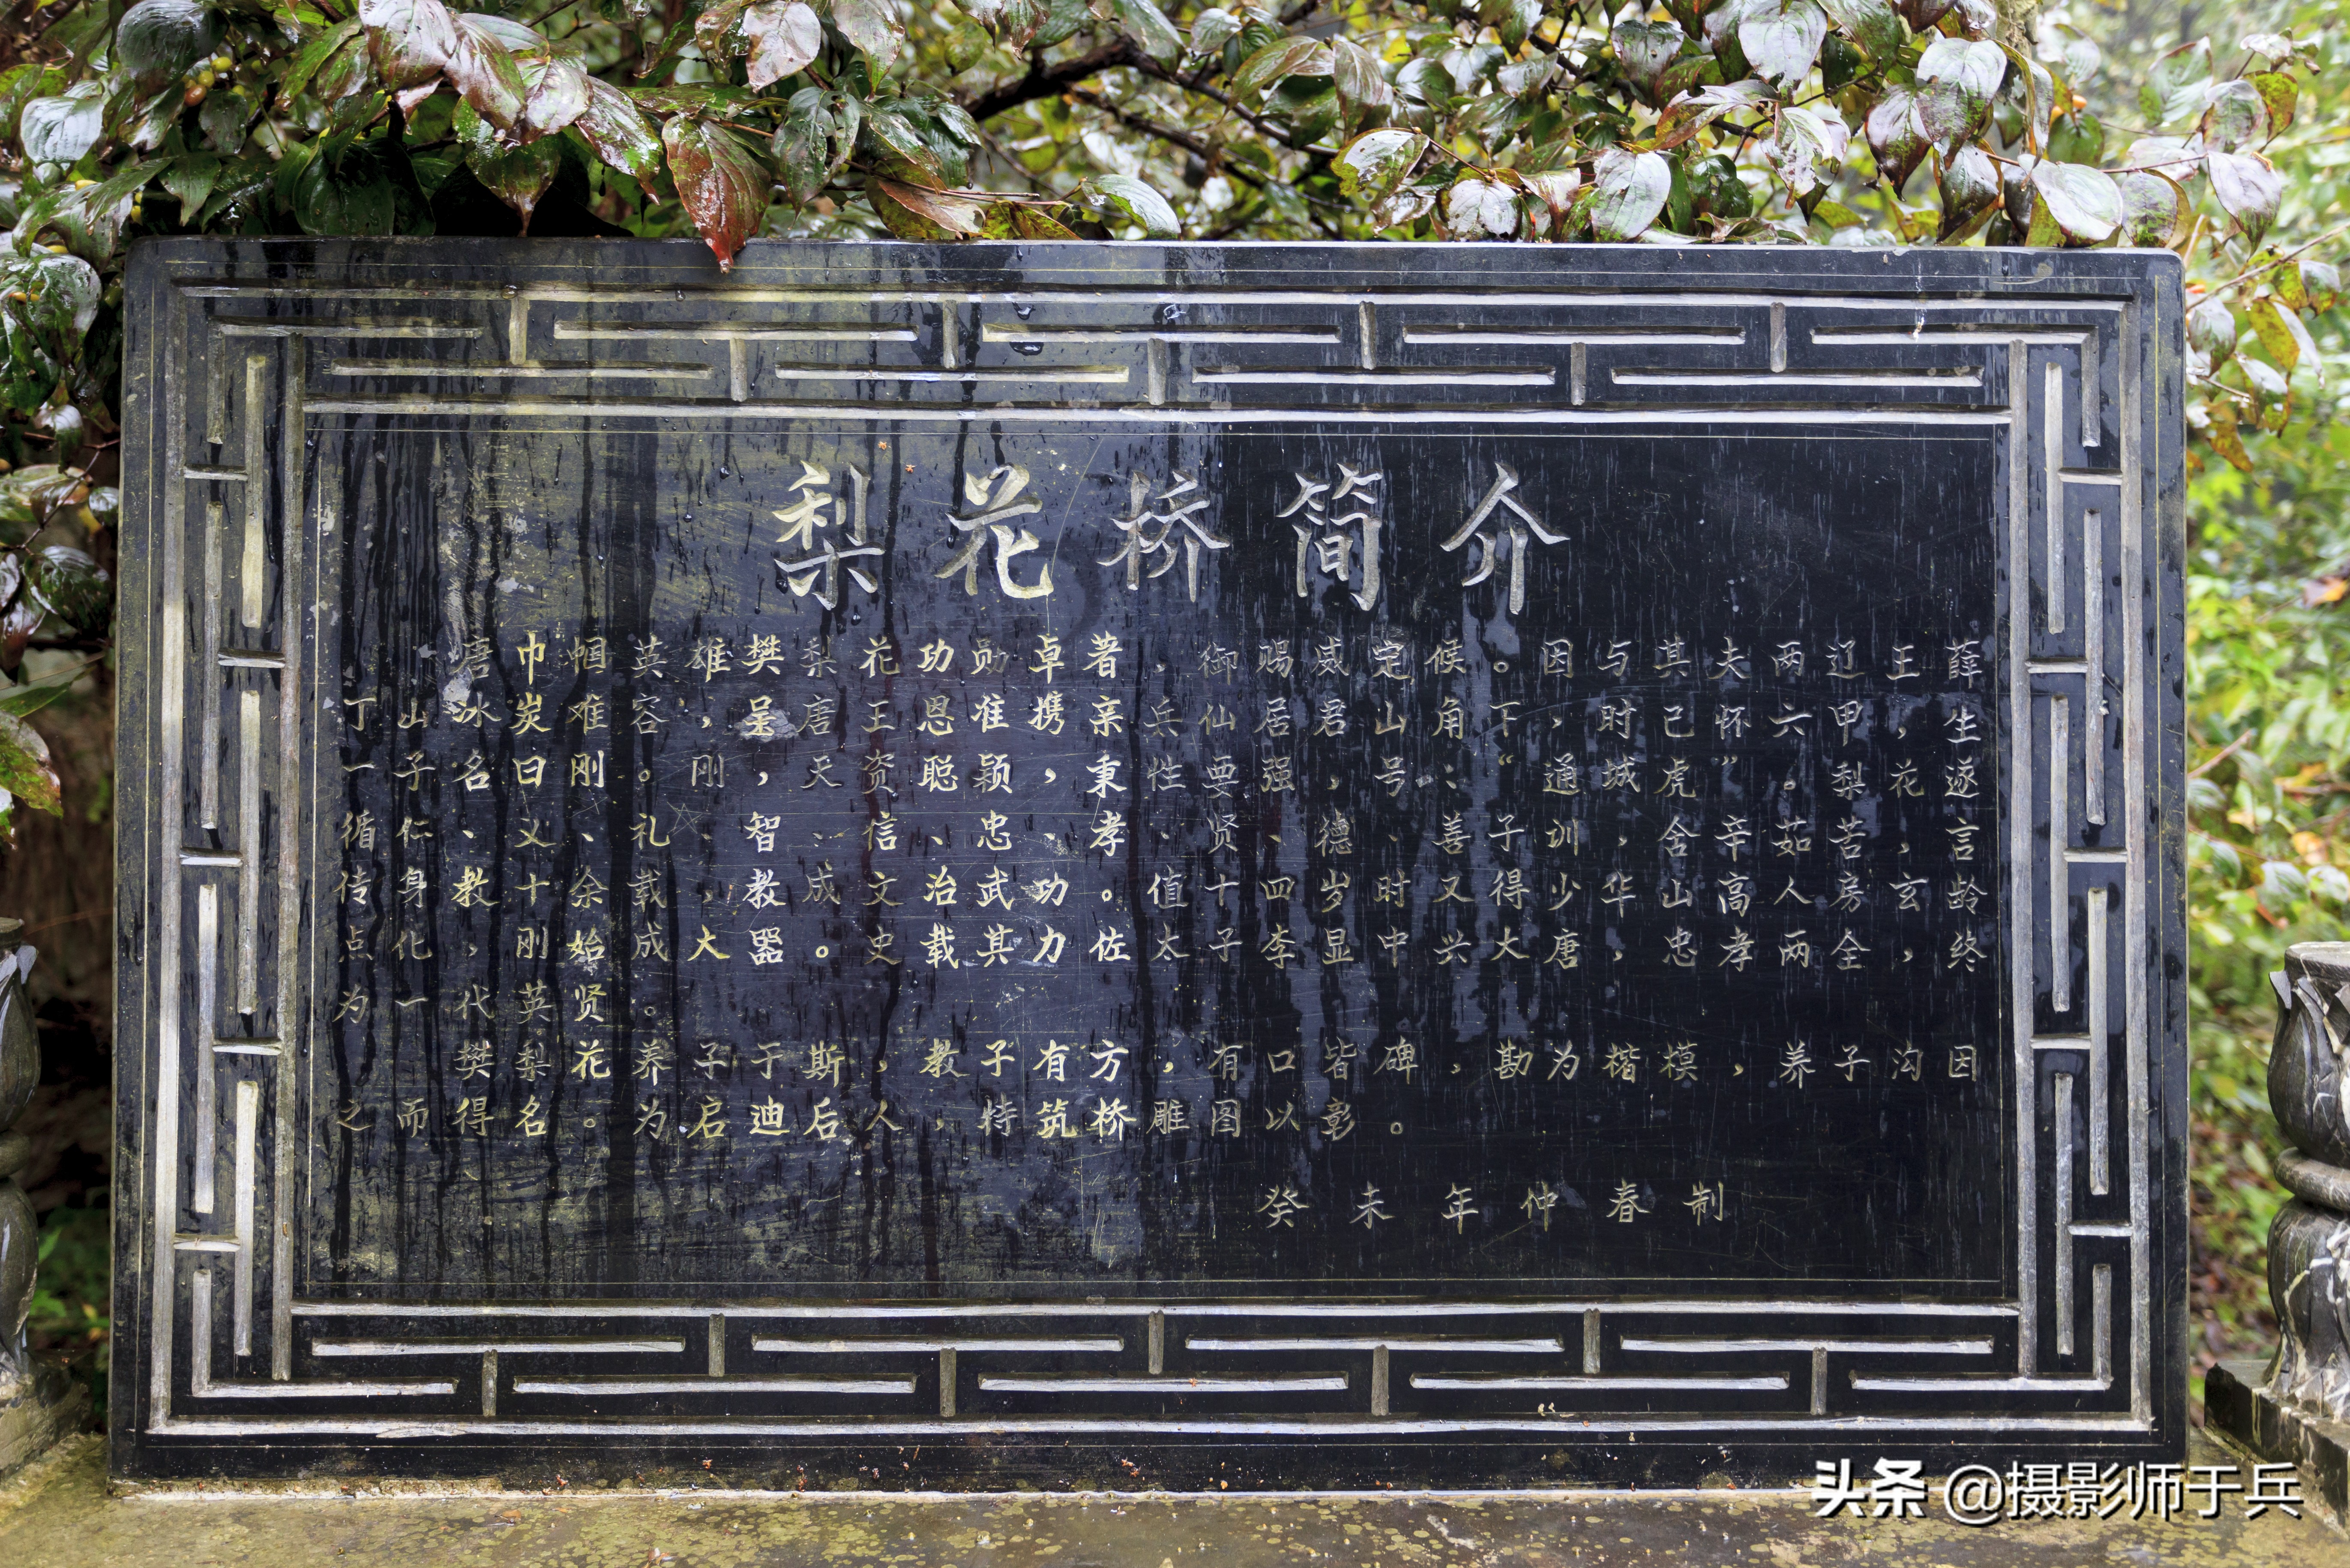 梨花桥简介
唐巾帼英雄樊梨花功勋卓著，御赐威定候。因与其夫两辽王薛
丁山冰炭难容，呈唐王恩准携亲兵仙居君山角下，时己怀六甲，生
一子名曰刚。刚，天资聪颖，秉性要强，号：“通城虎”。梨花遂
循仁、义、礼、智、信、忠、孝、贤、德、善子训，舍辛茹苦，言
传身教十余载，教成文治武功。值十四岁时又得少华山高人房玄龄
点化，刚始成大器。史载其力佐太子李显中兴大唐，忠孝两全，终
为一代英贤。
樊梨花养子于斯，教子有方，有口皆碑，勘为楷模，养子沟因
之而得名。为启迪后人，特筑桥雕图以彰。
癸未年仲春制
头条 @摄影师于兵